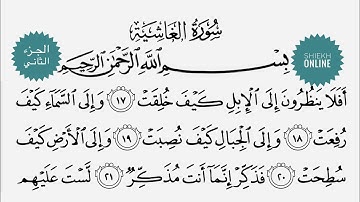 سُورَةُ الغَاشِيَةِ
الجزء
الثاني
SHIEKH
ONLINE
بِسْمِ اللَّهِ الرَّحْمَٰنِ الرَّحِيمِ
أَفَلَا يَنظُرُونَ إِلَى الْإِبِلِ كَيْفَ خُلِقَتْ ١٧ وَإِلَى السَّمَاءِ كَيْفَ
رُفِعَتْ ١٨ وَإِلَى الْجِبَالِ كَيْفَ نُصِبَتْ ١٩ وَإِلَى الْأَرْضِ كَيْفَ
سُطِحَتْ ٢٠ فَذَكِّرْ إِنَّمَا أَنتَ مُذَكِّرٌ ٢١ لَّسْتَ عَلَيْهِم